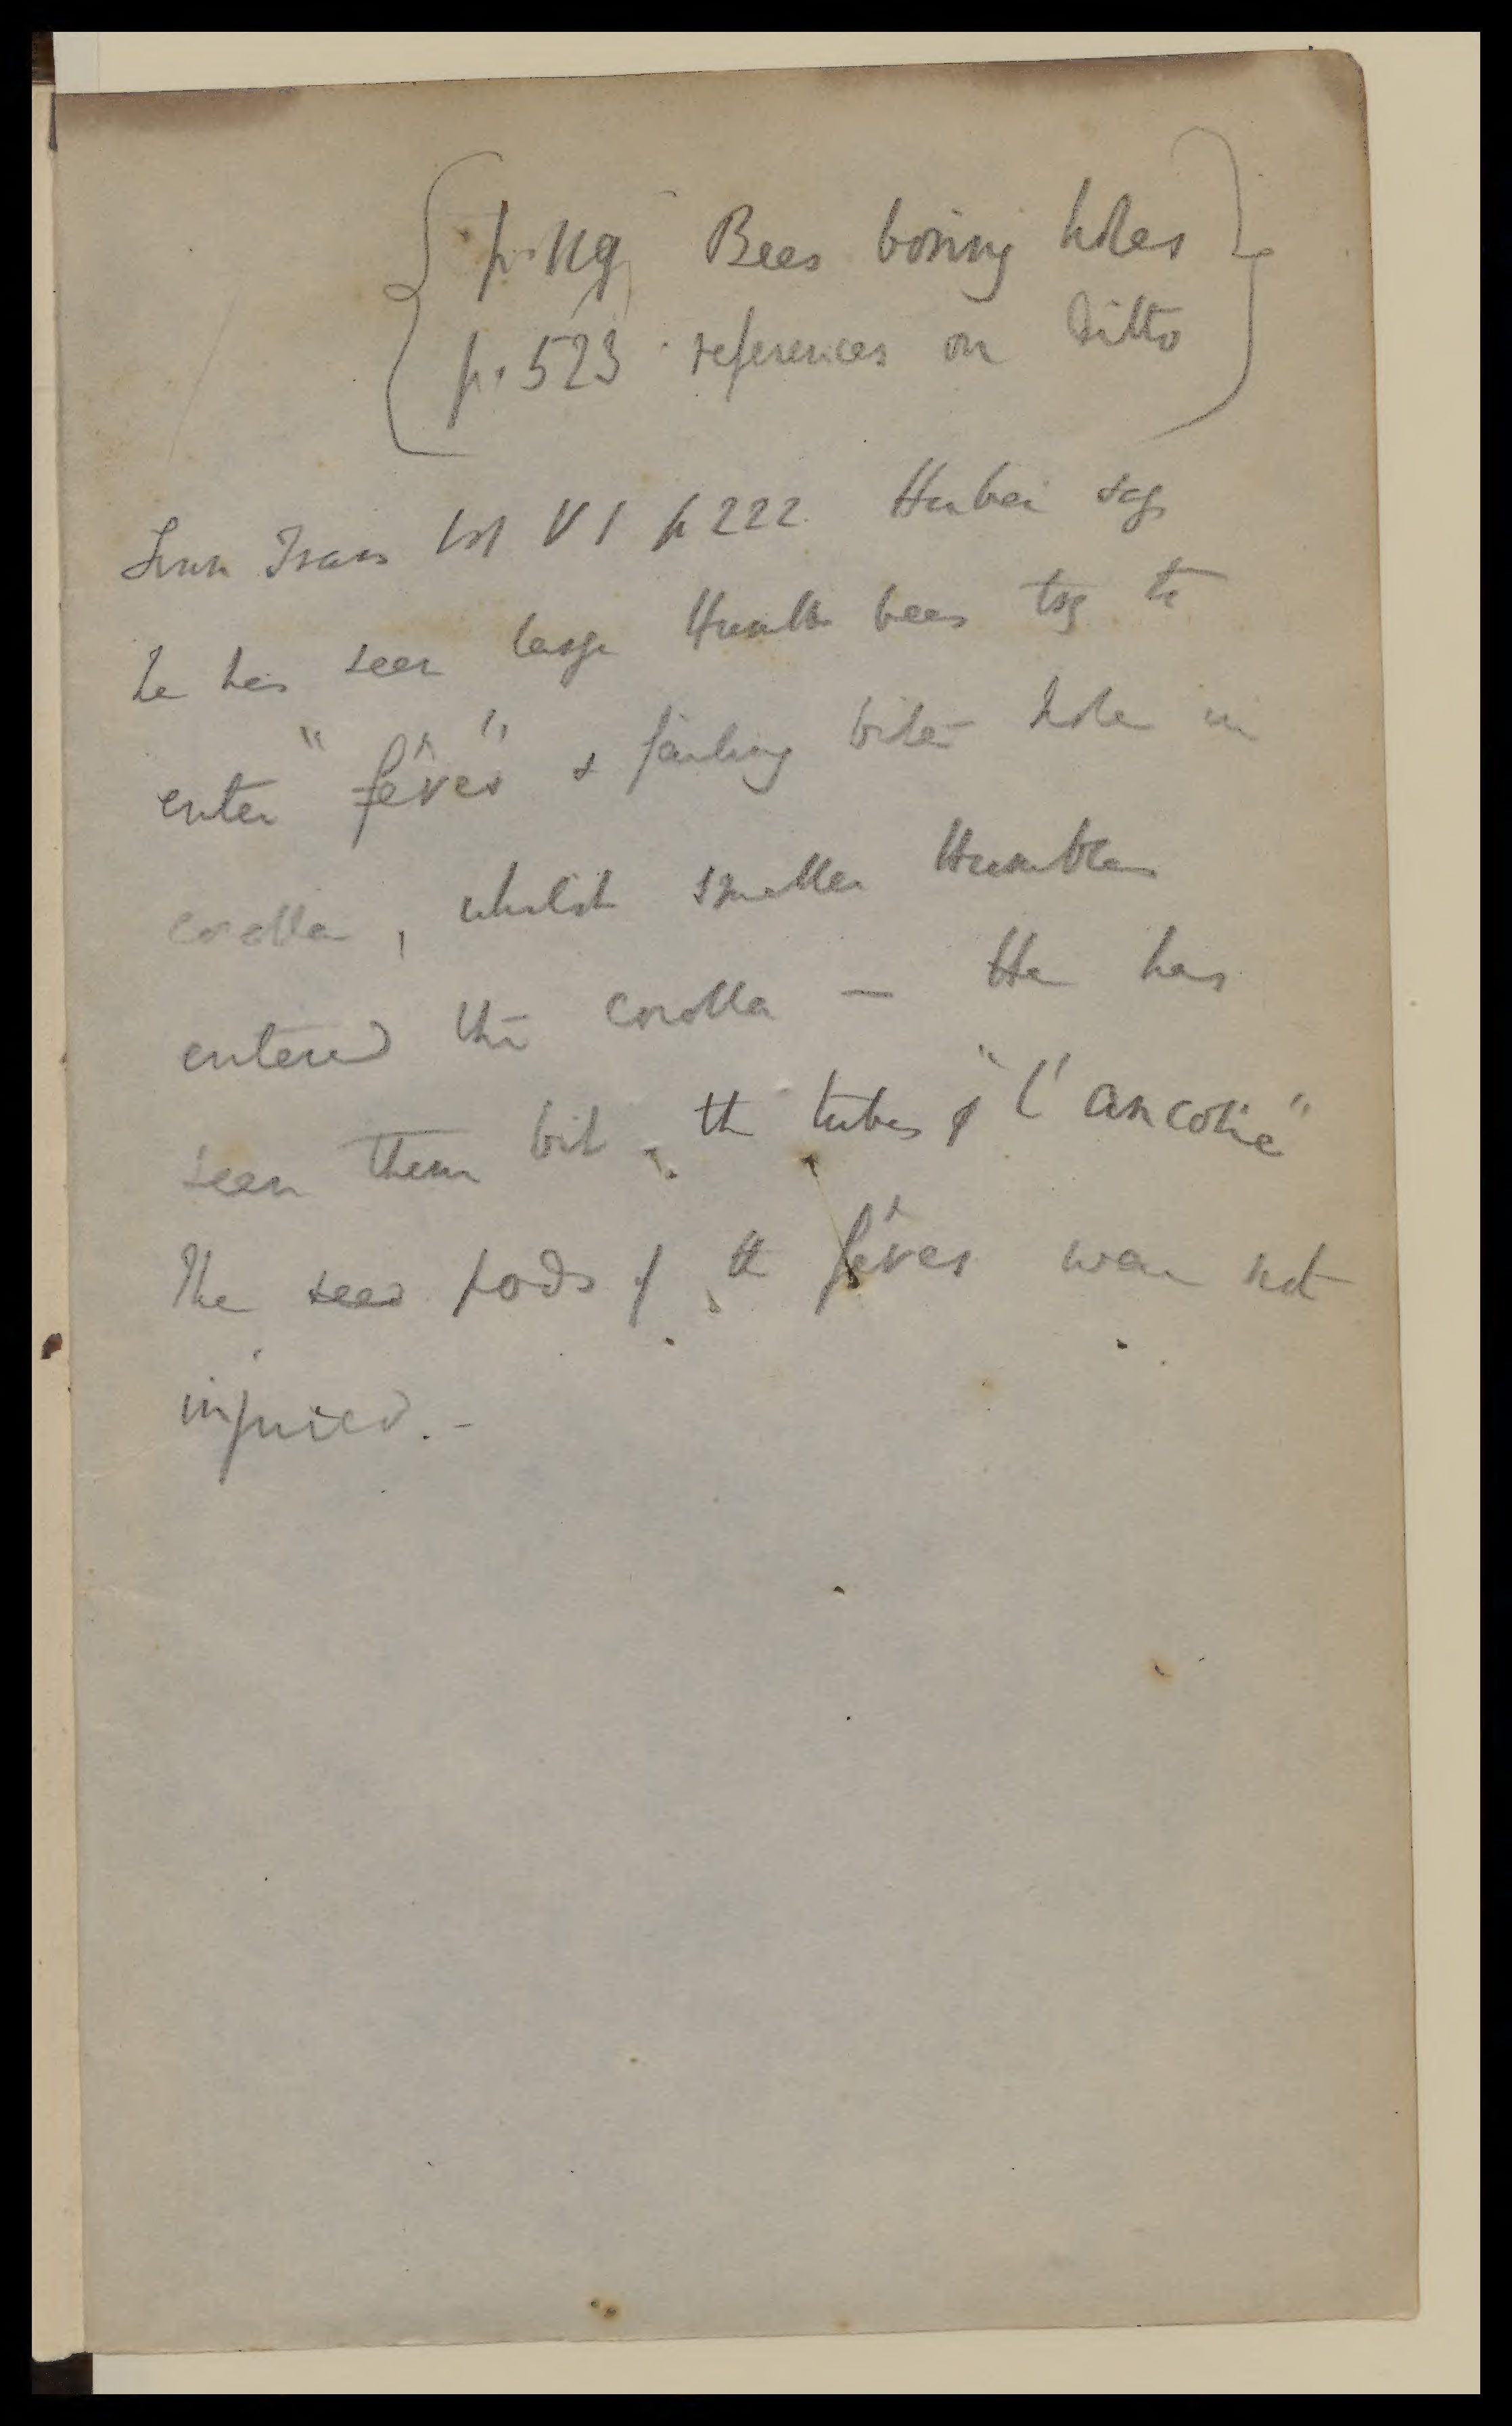 p. 119 Bees boring holes
p. 523 · references on Ditto
Linn Trans Vol VI p 222. Huber says
he has seen large Humble bees try to
enter "fêves" & failing bite hole in
corolla, whilst smaller Humbles
entered the corolla — He has
seen them bite the tubes of "l'ancolie"
The seed pods of the fêves were not
injured. –